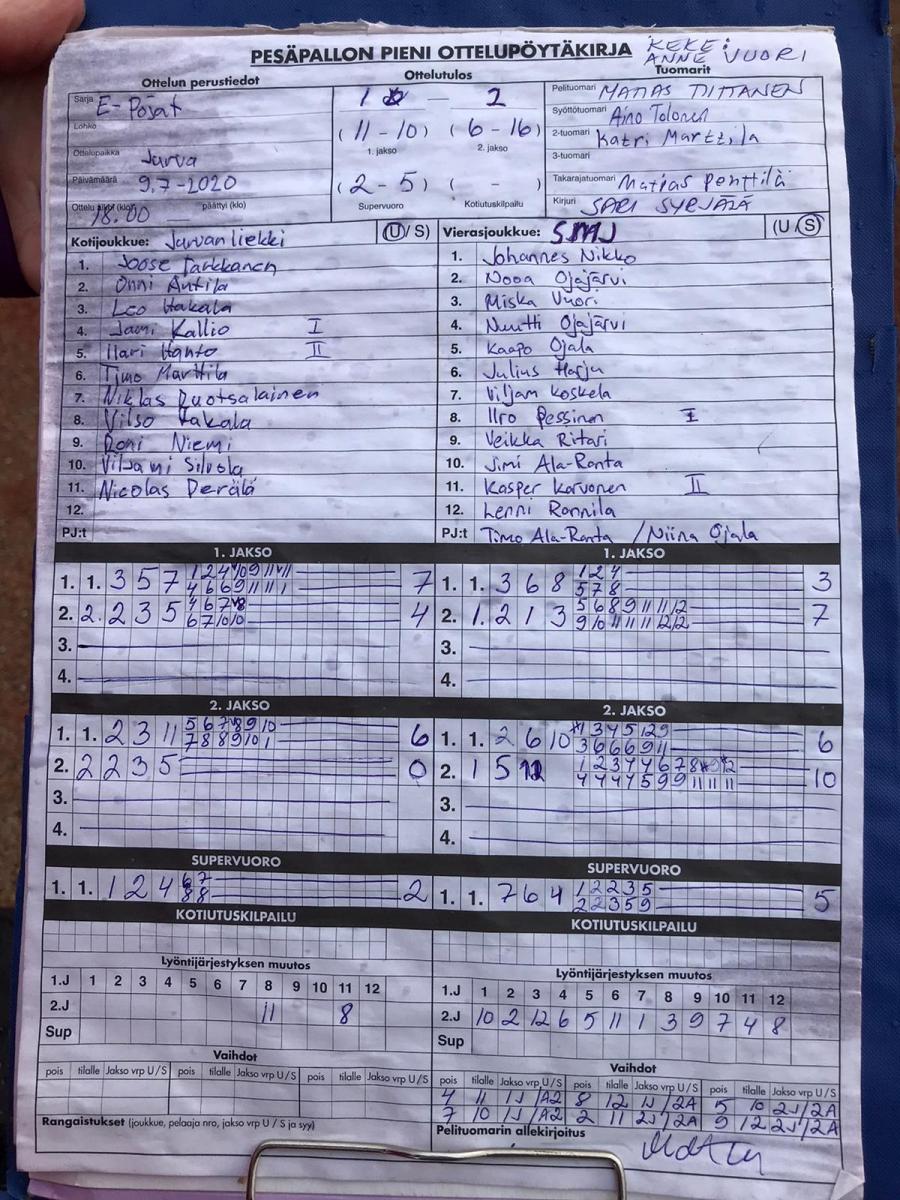 PESÄPALLON PIENI OTTELUPÖYTÄKIRJA
KEKE:
ANNE VUORI
Ottelun perustiedot
Ottelutulos
Tuomarit
Sarja E-Pojat
Lohko
Ottelupaikka Jurva
Päivämäärä 9.7-2020
Ottelu alkoi (klo) 18.00 päättyi (klo)
1 — 2
(11 - 10) (6 - 16)
1. jakso 2. jakso
(2 - 5) ( - )
Supervuoro Kotiutuskilpailu
Pelituomari MATIAS TIITTANEN
Syöttötuomari Aino Tolonen
2-tuomari Katri Marttila
3-tuomari
Takarajatuomari Matias Penttilä
Kirjuri SARI SYRJÄLÄ
Kotijoukkue: Jurvan liekki (U/S)
1. Joose Tarkkanen
2. Onni Antila
3. Leo Hakala
4. Jami Kallio I
5. Ilari Hanto II
6. Timo Marttila
7. Niklas Ruotsalainen
8. Vilso Hakala
9. Roni Niemi
10. Viljami Silvola
11. Nicolas Perälä
12.
PJ:t
Vierasjoukkue: SMJ (U/S)
1. Johannes Nikko
2. Nooa Ojajärvi
3. Miska Vuori
4. Nuutti Ojajärvi
5. Kaapo Ojala
6. Julius Harju
7. Viljam Koskela
8. Iiro Pessinen I
9. Veikka Ritari
10. Jimi Ala-Ranta
11. Kasper Karvonen II
12. Lenni Rannila
PJ:t Timo Ala-Ranta / Niina Ojala
1. JAKSO
1. 1. 3 5 7 7
2. 2. 2 3 5 4
3.
4.
1. JAKSO
1. 1. 3 6 8 1 2 4 3
5 7 8
2. 1. 2 1 3 5 6 8 9 11 11 12 7
9 10 11 11 11 12 12
3.
4.
2. JAKSO
1. 1. 2 3 11 5 6 7 8 9 10 6
7 8 8 9 10 1
2. 2 2 3 5 0
3.
4.
2. JAKSO
1. 1. 2 6 10 1 3 4 5 12 9 6
3 6 6 6 9 11
2. 1 5 1 2 3 4 4 6 7 8 9 12 10
4 4 4 4 5 9 9 11 11 11
3.
4.
SUPERVUORO
1. 1. 1 2 4 6 7 2
8 8
SUPERVUORO
1. 1. 7 6 4 1 2 2 3 5 5
2 2 3 5 9
KOTIUTUSKILPAILU
KOTIUTUSKILPAILU
Lyöntijärjestyksen muutos
1.J 1 2 3 4 5 6 7 8 9 10 11 12
2.J 11 8
Sup
Lyöntijärjestyksen muutos
1.J 1 2 3 4 5 6 7 8 9 10 11 12
2.J 10 2 12 6 5 11 1 3 9 7 4 8
Sup
Vaihdot
pois tilalle Jakso vrp U/S pois tilalle Jakso vrp U/S pois tilalle Jakso vrp U/S
Rangaistukset (joukkue, pelaaja nro, jakso vrp U / S ja syy)
Vaihdot
pois tilalle Jakso vrp U/S pois tilalle Jakso vrp U/S pois tilalle Jakso vrp U/S
4 11 1J/A2 8 12 1J/2A 5 10 2J/2A
7 10 1J/A2 2 11 2J/2A 9 12 2J/2A
Pelituomarin allekirjoitus